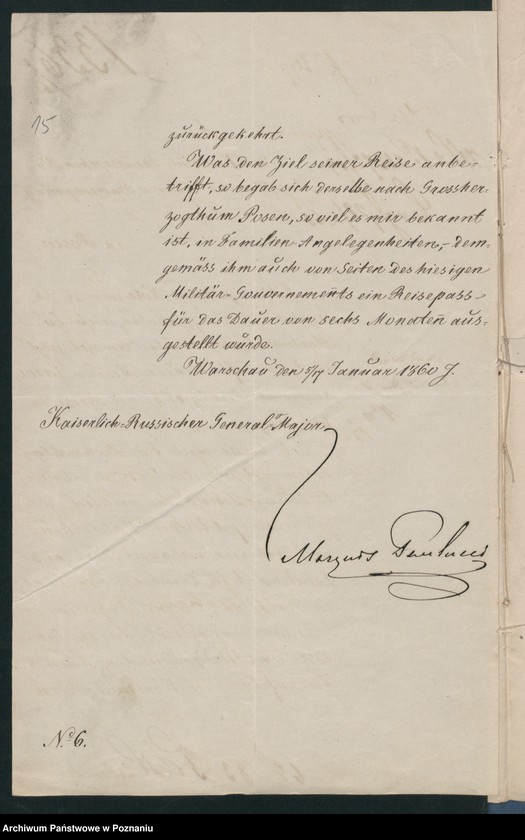 15
zurückgekehrt.
Was den Ziel seiner Reise anbe-
trifft, so begab sich derselbe nach Grossher
zogthum Posen, so viel es mir bekannt
ist, in Familien-Angelegenheiten, dem-
gemäss ihm auch von Seiten des hiesigen
Militär-Gouvernements ein Reisepass
für das Dauer von sechs Monaten aus-
gestellt wurde.
Warschau den 5/17 Januar 1860 J.
Kaiserlich-Russischer General Major
Marquis Paulucci
No 6.
Archiwum Państwowe w Poznaniu